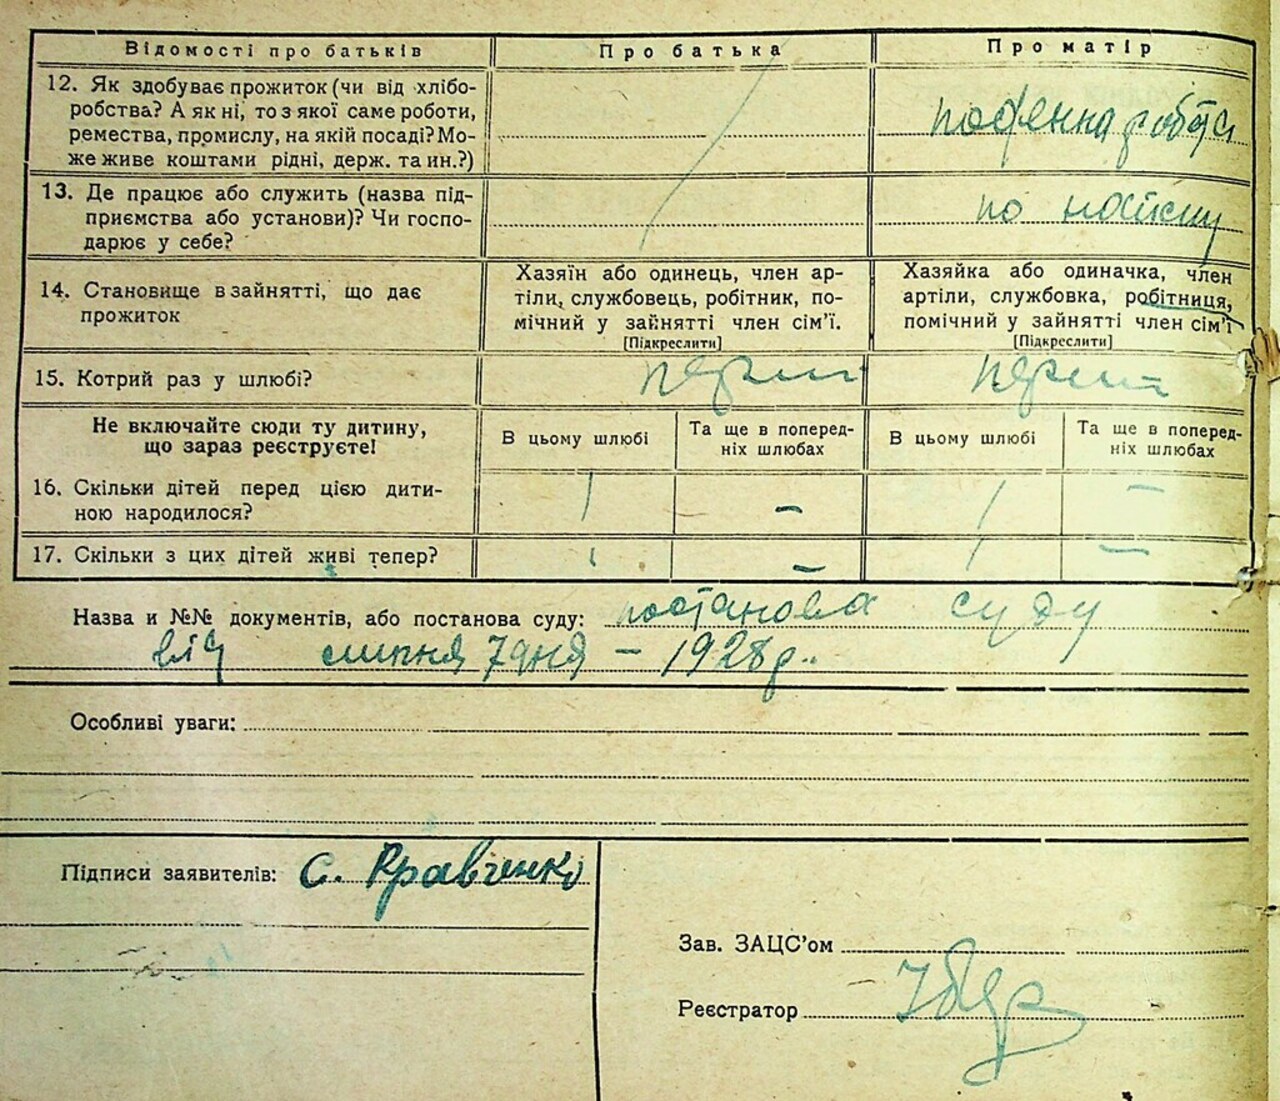 Відомості про батьків
Про батька
Про матір
12. Як здобуває прожиток (чи від хлібо-
робства? А як ні, то з якої саме роботи,
ремества, промислу, на якій посаді? Мо-
же живе коштами рідні, держ. та ин.?)
поденна робота
13. Де працює або служить (назва під-
приємства або установи)? Чи госпо-
дарює у себе?
по найму
14. Становище в зайнятті, що дає
прожиток
Хазяїн або одинець, член ар-
тіли, службовець, робітник, по-
мічний у зайнятті член сім'ї.
[Підкреслити]
Хазяйка або одиначка, член
артіли, службовка, робітниця,
помічний у зайнятті член сім'ї
[Підкреслити]
15. Котрий раз у шлюбі?
перший
перший
Не включайте сюди ту дитину,
що зараз реєструєте!
В цьому шлюбі
Та ще в поперед-
ніх шлюбах
В цьому шлюбі
Та ще в поперед-
ніх шлюбах
16. Скільки дітей перед цією дити-
ною народилося?
1 – 1 –
17. Скільки з цих дітей живі тепер?
1 – 1 –
Назва и №№ документів, або постанова суду: постанова суду
від липня 7 дня – 1928 р.
Особливі уваги:
Підписи заявителів: С. Кравченко
Зав. ЗАЦС'ом
Реєстратор